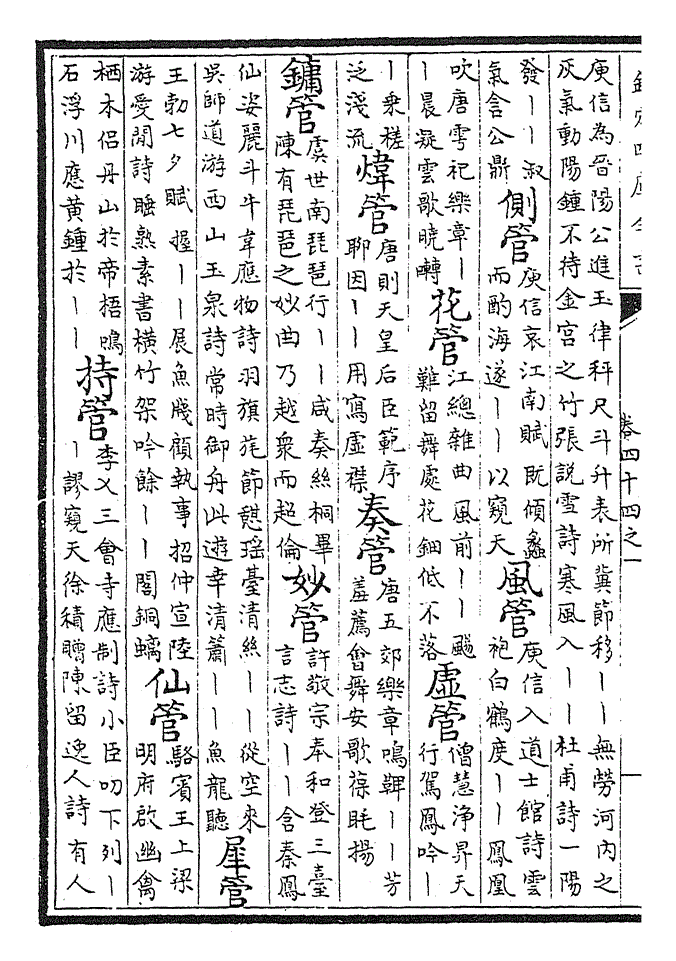 欽定四庫全書
卷四十四之一
一
庾信為晉陽公進玉律秤尺斗升表所冀節移丨丨無勞河内之
灰氣動陽鍾不待金宫之竹張説雪詩寒風入丨丨杜甫詩一陽
發丨丨淑
氣含公鼎
側管
庾信哀江南賦既傾蠡
而酌海遂丨丨以窺天
風管
庾信入道士館詩雲
袍白鶴度丨丨鳳凰
吹唐雩祀樂章丨
丨晨凝雲歌曉囀
花管
江總雜曲風前丨丨颺
難留舞處花鈿低不落
虛管
僧慧浄昇天
行駕鳳吟丨
丨乗槎
泛淺流
煒管
唐則天皇后臣範序
聊因丨丨用寫虛襟
奏管
唐五郊樂章鳴鞞丨丨芳
羞薦會舞安歌葆眊揚
鏞管
虞世南琵琶行丨丨咸奏絲桐畢
陳有琵琶之妙曲乃越衆而超倫
妙管
許敬宗奉和登三臺
言志詩丨丨含秦鳳
仙姿麗斗牛韋應物詩羽旗旄節憇瑶臺清絲丨丨從空來
吳師道游西山玉泉詩常時御舟此遊幸清簫丨丨魚龍聽
犀管
王勃七夕賦握丨丨展魚牋顧執事招仲宣陸
游愛閒詩睡熟素書横竹架吟餘丨丨閣銅螭
仙管
駱賓王上梁
明府啟幽禽
栖木侣丹山於帝梧鳴
石浮川應黄鍾於丨丨
持管
李乂三會寺應制詩小臣叨下列丨
丨謬窺天徐積贈陳留逸人詩有人